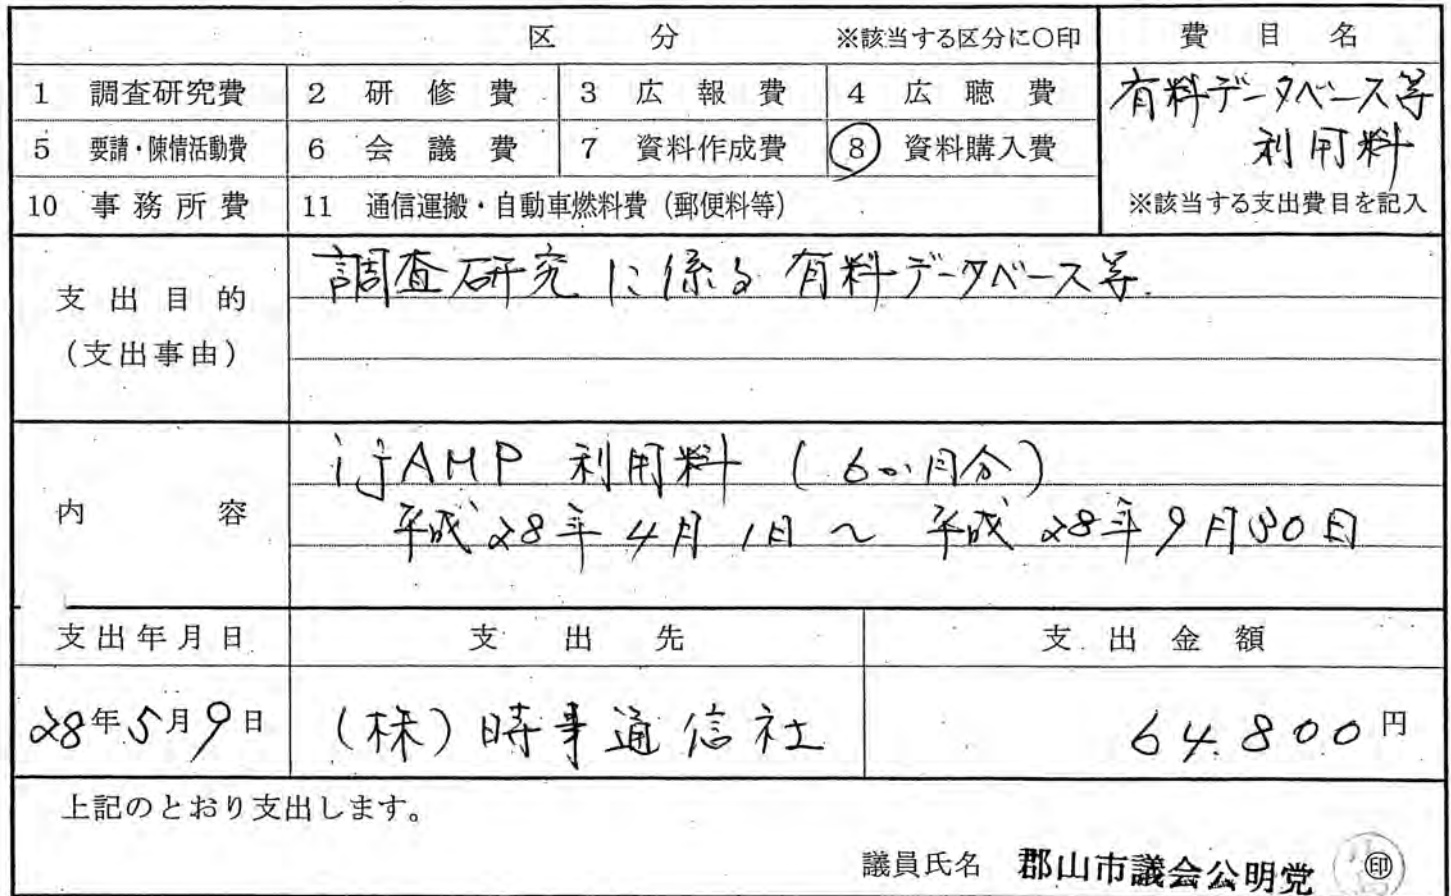 区分 ※該当する区分に○印 費目名
1 調査研究費 2 研修費 3 広報費 4 広聴費 有料データベース等
5 要請・陳情活動費 6 会議費 7 資料作成費 ⑧ 資料購入費 利用料
10 事務所費 11 通信運搬・自動車燃料費（郵便料等） ※該当する支出費目を記入
支出目的 調査研究に係る有料データベース等
（支出事由）
ijAMP 利用料（6か月分）
内容 平成28年4月1日～平成28年9月30日
支出年月日 支出先 支出金額
28年5月9日 （株）時事通信社 64,800円
上記のとおり支出します。
議員氏名 郡山市議会公明党 ㊞